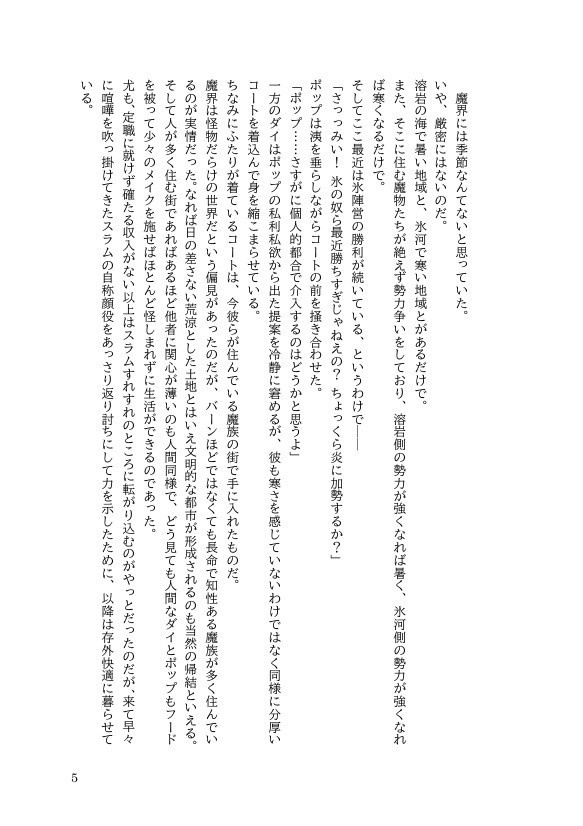 魔界には季節なんてないと思っていた。
いや、厳密にはないのだ。
溶岩の海で暑い地域と、氷河で寒い地域とがあるだけで。
また、そこに住む魔物たちが絶えず勢力争いをしており、溶岩側の勢力が強くなれば暑く、氷河側の勢力が強くなれ
ば寒くなるだけで。
そしてここ最近は氷陣営の勝利が続いている、というわけで――
「さっっみい！ 氷の奴ら最近勝ちすぎじゃねえの？ ちょっくら炎に加勢するか？」
ポップは洟を垂らしながらコートの前を掻き合わせた。
「ポップ……さすがに個人的都合で介入するのはどうかと思うよ」
一方のダイはポップの私利私欲から出た提案を冷静に窘めるが、彼も寒さを感じていないわけではなく同様に分厚い
コートを着込んで身を縮こまらせている。
ちなみにふたりが着ているコートは、今彼らが住んでいる魔族の街で手に入れたものだ。
魔界は怪物だらけの世界だという偏見があったのだが、バーンほどではなくても長命で知性ある魔族が多く住んでい
るのが実情だった。なれば日の差さない荒涼とした土地とはいえ文明的な都市が形成されるのも当然の帰結といえる。
そして人が多く住む街であればあるほど他者に関心が薄いのも人間同様で、どう見ても人間なダイとポップもフード
を被って少々のメイクを施せばほとんど怪しまれずに生活ができるのであった。
尤も、定職に就けず確たる収入がない以上はスラムすれすれのところに転がり込むのがやっとだったのだが、来て早々
に喧嘩を吹っ掛けてきたスラムの自称顔役をあっさり返り討ちにして力を示したために、以降は存外快適に暮らせて
いる。
5